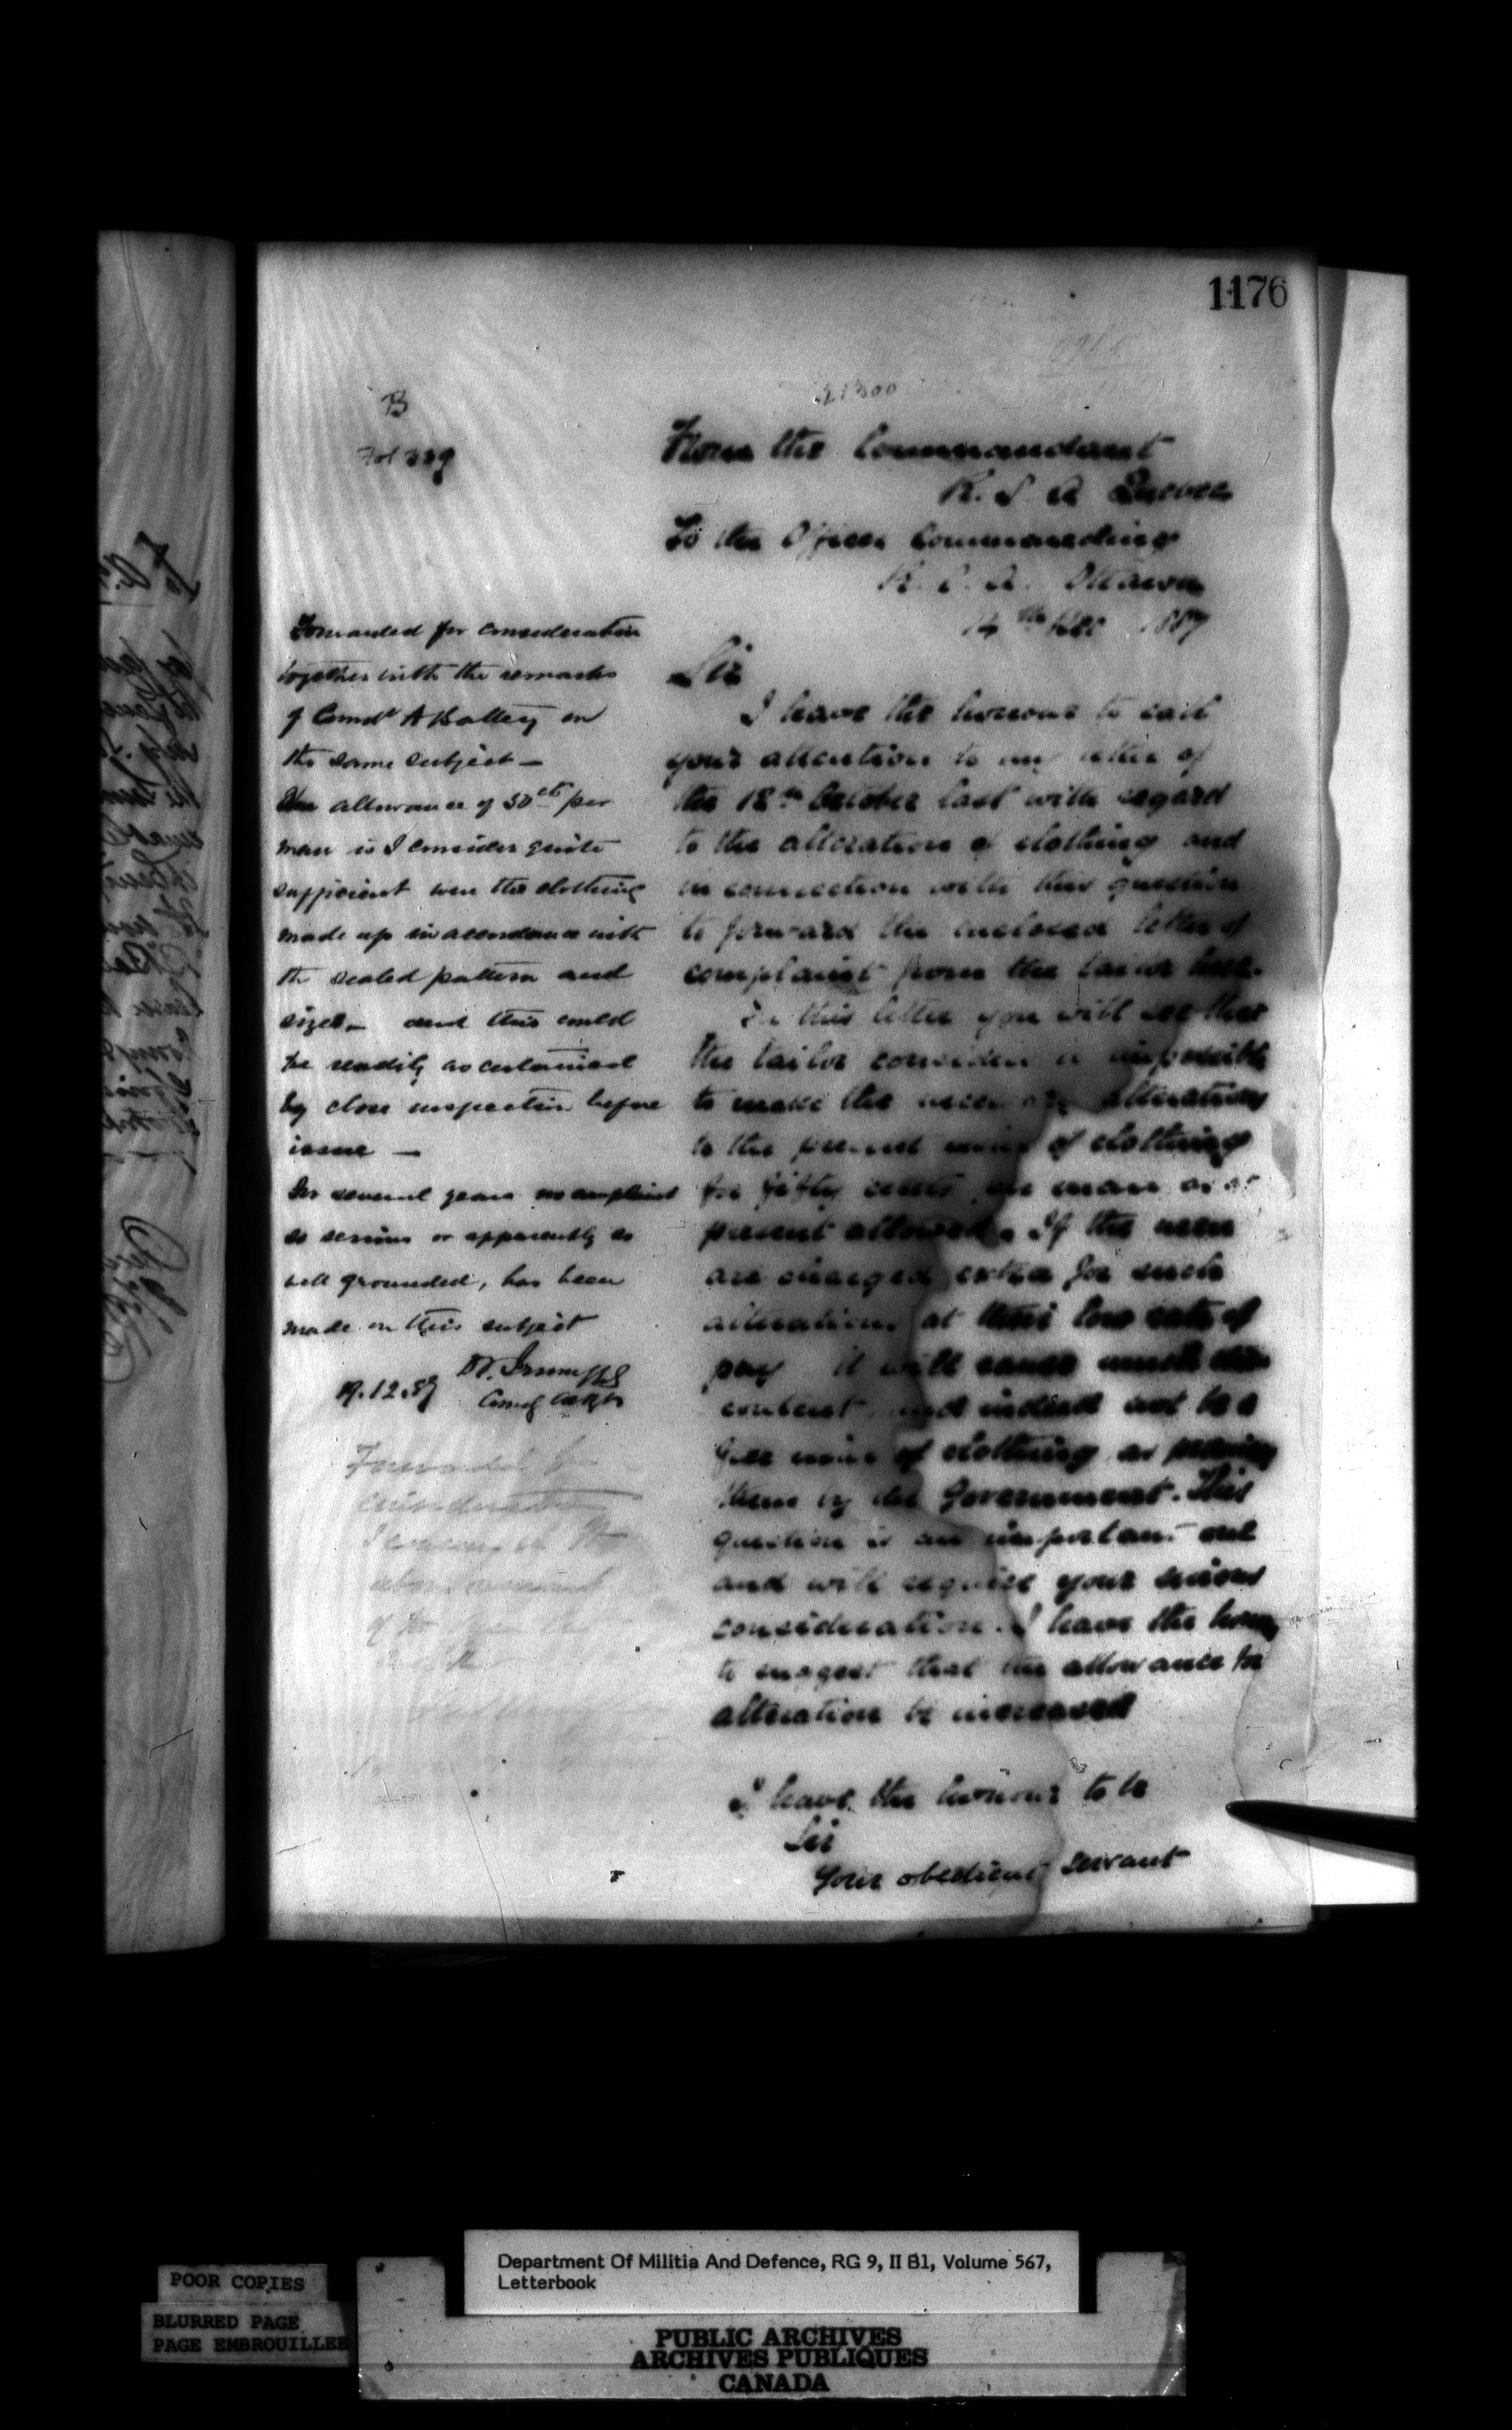 1176
21300
B
Fol 339
From the Commandant
R. S. A Quebec
To the Officer Commanding
R. C. A. Ottawa
14th Dec 1887
Sir
I have the honour to call
your attention to my letter of
the 18th October last with regard
to the alteration of clothing and
in connection with this question
to forward the enclosed letter of
complaint from the tailor here.
In this letter you will see that
the tailor considers it impossible
to make the necessary alterations
to the present issue of clothing
for fifty cents per man as at
present allowed. If the men
are charged extra for such
alterations at their low rate of
pay it will cause much dis-
content and indeed not be a
free issue of clothing as promised
them by the Government. This
question is an important one
and will require your serious
consideration. I have the honour
to suggest that the allowance for
alteration be increased
I have the honour to be
Sir
Your obedient servant
Forwarded for consideration
together with the remarks
of Comdt A Battery on
the same subject —
The allowance of 50cts per
man is I consider quite
sufficient were the clothing
made up in accordance with
the sealed pattern and
sizes — and this could
be readily ascertained
by close inspection before
issue —
For several years no complaint
so serious or apparently so
well grounded, has been
made on this subject
19.12.87
D.T. Irwin
Forwarded for
consideration
I concur in the
of the
Department Of Militia And Defence, RG 9, II B1, Volume 567,
Letterbook
POOR COPIES
BLURRED PAGE
PAGE EMBROUILLEE
PUBLIC ARCHIVES
ARCHIVES PUBLIQUES
CANADA